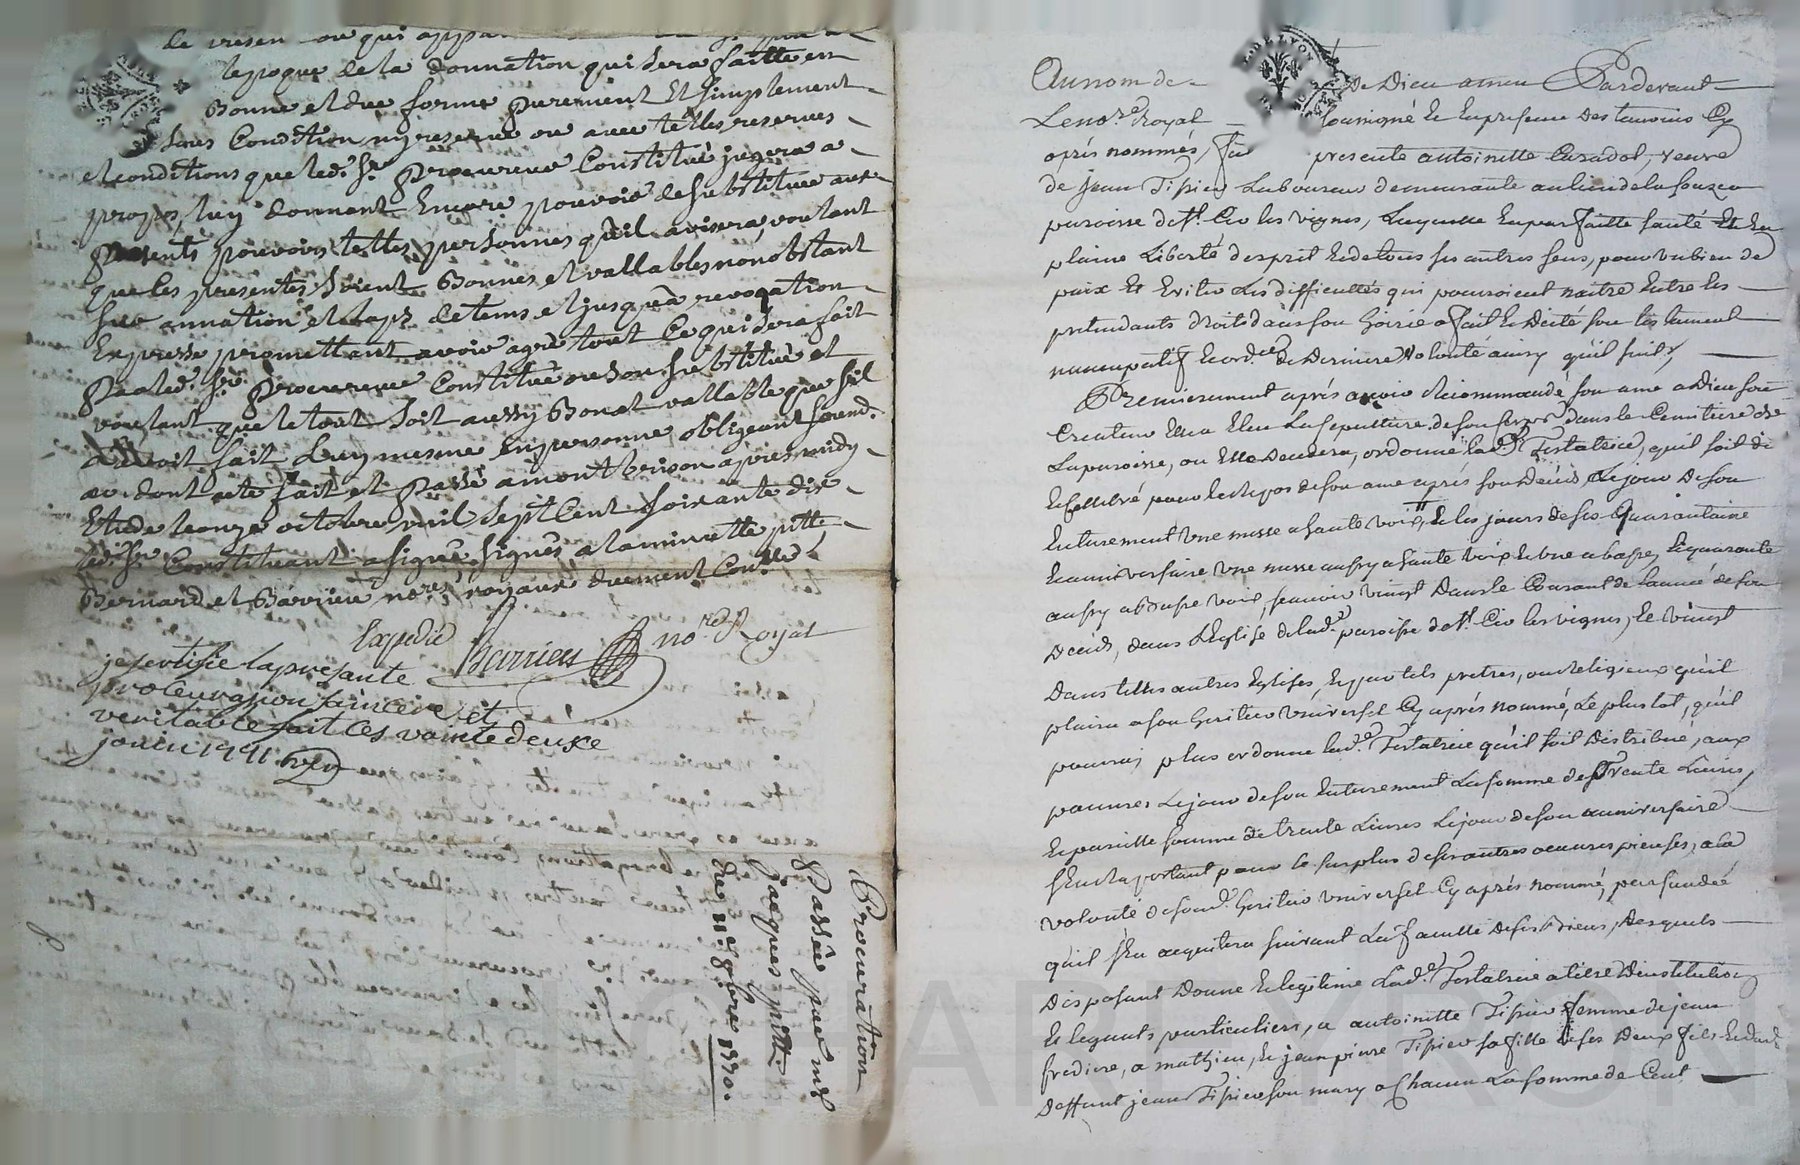 l'epoque de la donnation qui sera faitte en
Bonne et due forme purement Et simplement
sans Condition ny reserve ou avec telles reserves
et conditions que led. Sr. procureur Constitué jugera a
propos, luy donnant Encore pouvoir de substituer aux
presents pouvoirs telles personnes qu'il avisera, voulant
que les presentes soient Bonnes et vallables nonobstant
sur annation et laps de tems et jusqu'à revocation
Expresse promettant avoir agrée tout Ce qui sera fait
Par led. Sr. procureur Constitué ou son substitué et
voulant que le tout soit aussy Bon et vallable que s'il
avoit fait Luy mesme en personne obligeant
dont acte fait et Passé a montbrison apres midy
Etude le onze octobre mil sept Cent soixante dix
led. Sr. Constituant a signé. signés a la minutte pitte
Bernard et Barrieu nores. royaux duement Conllé
Expedié Barrieu nore. Royal
je sertifie la presante
proceuration sincere et
veritable fait ces vainte deuxe
1791
Procuration
Passée par mr
Jacques pitte
Du 11e. 8bre 1770.
Au nom de Dieu amen Pardevant
Le nore. royal soussigné Et En presence des temoins Cy
aprés nommés, fut presente antoinette Caradot, veuve
de jean Tisseur Laboureur demeurante au lieu de la
paroisse de st. Cir les vignes, Laquelle En parfaitte santé Et En
plaine Liberté d'esprit Et de tous ses autres sens, pour
paix Et Eviter Les difficultés qui pourroient naitre Entre les
pretendants droits dans son hoirie a fait Et Dicté son testament
nuncupatif Et ordre. de Derniere Volonté ainsy qu'il suit,
Premierement aprés avoir Recommandé son ame a Dieu son
Createur Elle a Eleu La sepulture de son corps dans le Cemitiere de
La paroisse, ou Elle Decedera, ordonne lade. Testatrice, qu'il soit dit
Et Cellebré pour le repos de son ame aprés son Décés, Le jour de son
Enterement Une messe a haute voix, Et les jours de ses Quarantaine
Et anniversaire une messe aussy a haute voix Et une a basse, Et quarante
aussy a basse voix, scavoir vingt Dans le Courant de l'année de son
Décés, dans L'Eglise de lade. paroisse de st. Cir les vignes, Et vingt
Dans telles autres Eglises, Et par tels pretres, ou Religieux qu'il
plaira a son heritier Universel Cy aprés nommé, Le plustot, qu'il
pourra, plus ordonne lade. Testatrice qu'il soit Distribué, aux
pauvres Le jour de son Enterement La somme de Trente Livres,
Et pareille somme de trente Livres Le jour de son anniversaire
s'En raportant pour le surplus de ses autres oeuvres pieuses, a la
volonté de sond. heritier Universel Cy aprés nommé, persuadée
qu'il s'En acquitera suivant La faculté de ses Biens, Desquels
Disposant Donne Et legitime Lade. Testatrice a titre D'institution
Et leguats particuliers, a antoinette Tisseur femme de jean
frediere, a mathieu, Et jean pierre Tisseur sa fille Et ses Deux fils Et dudt.
Deffunt jean Tisseur son mary a Chacun La somme de Cent